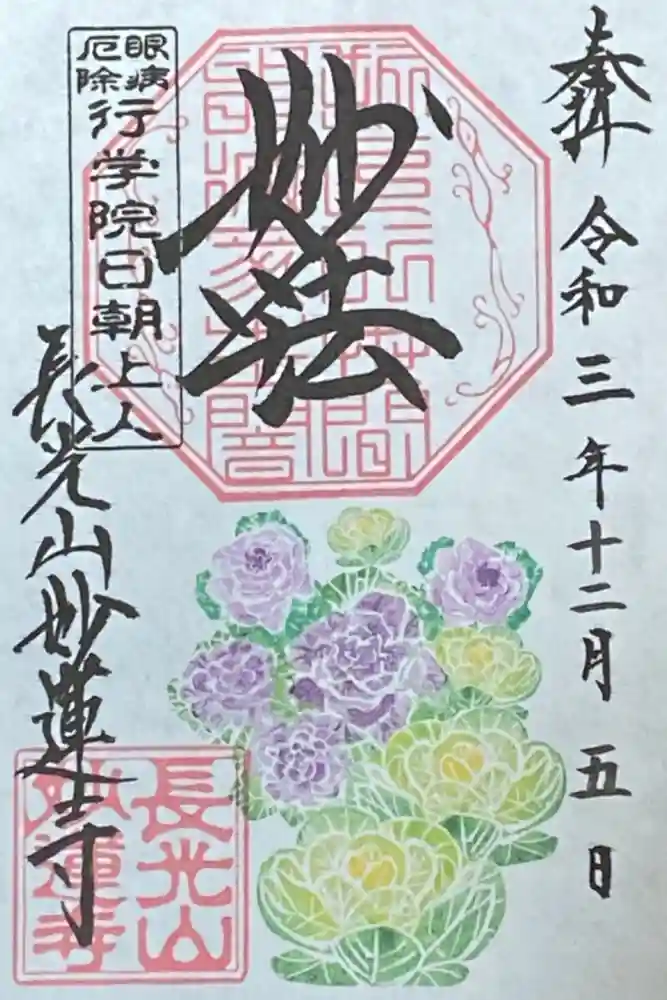 奉拝
令和三年十二月五日
妙法
眼病
厄除
行学院日朝上人
長光山妙蓮寺
長光山
妙蓮寺